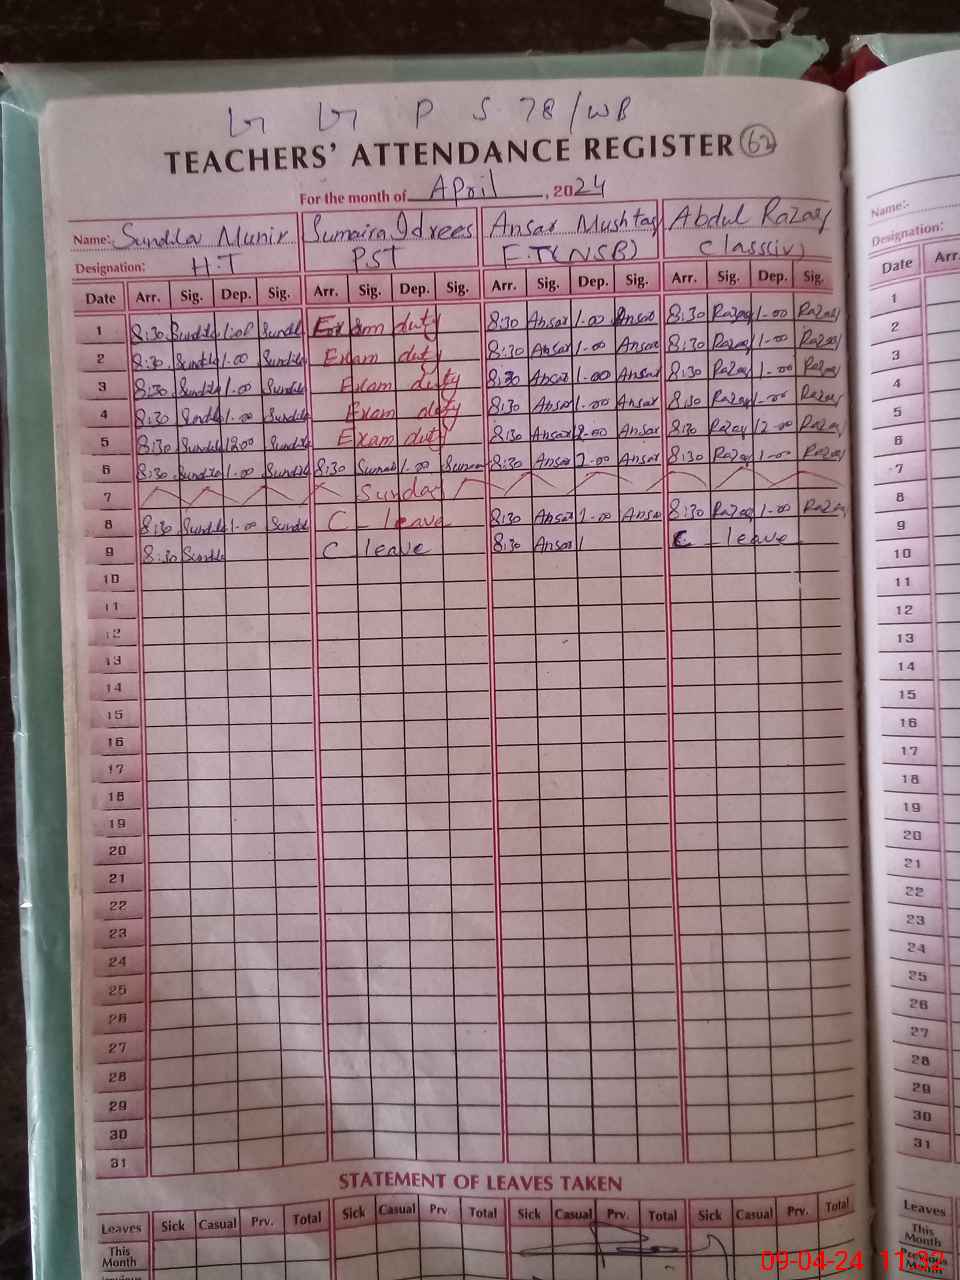 G G P S 78/WB
TEACHERS' ATTENDANCE REGISTER 62
For the month of April, 2024
Name: Sundila Munir Sumaira Idrees Ansar Mushtaq Abdul Razaq
Designation: H.T PST E.T(NSB) Class(iv)
Date Arr. Sig. Dep. Sig. Arr. Sig. Dep. Sig. Arr. Sig. Dep. Sig. Arr. Sig. Dep. Sig.
1 8:30 Sundila 1:00 Sundila Exam duty 8:30 Ansar 1-00 Ansar 8:30 Razaq 1-00 Razaq
2 8:30 Sundila 1-00 Sundila Exam duty 8:30 Ansar 1-00 Ansar 8:30 Razaq 1-00 Razaq
3 8:30 Sundila 1-00 Sundila Exam duty 8:30 Ansar 1-00 Ansar 8:30 Razaq 1-00 Razaq
4 8:30 Sundila 1-00 Sundila Exam duty 8:30 Ansar 1-00 Ansar 8:30 Razaq 1-00 Razaq
5 8:30 Sundila 1200 Sundila Exam duty 8:30 Ansar 12-00 Ansar 8:30 Razaq 12-00 Razaq
6 8:30 Sundila 1-00 Sundila 8:30 Sumaira 1-00 Sumaira 8:30 Ansar 1-00 Ansar 8:30 Razaq 1-00 Razaq
7 Sunday
8 8:30 Sundila 1-00 Sundila C - leave 8:30 Ansar 1-00 Ansar 8:30 Razaq 1-00 Razaq
9 8:30 Sundila C leave 8:30 Ansar C - leave
10
11
12
13
14
15
16
17
18
19
20
21
22
23
24
25
26
27
28
29
30
31
STATEMENT OF LEAVES TAKEN
Leaves Sick Casual Prv. Total Sick Casual Prv Total Sick Casual Prv. Total Sick Casual Prv. Total
This Month
Previous
Name:-
Designation:
Date Arr.
1
2
3
4
5
6
7
8
9
10
11
12
13
14
15
16
17
18
19
20
21
22
23
24
25
26
27
28
29
30
31
Leaves
This Month
Previous Month
09-04-24 11:32